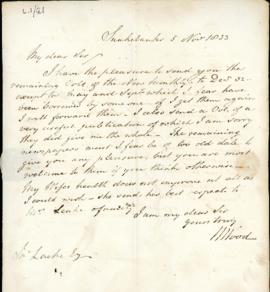 L3/21
5 Nov 1833
My dear Sir
I have the pleasure to send you the
remaining Vols of the New Monthly to Dec 32
except for May and Sept which I fear have
been borrowed by some one - if I get them again
I will forward them - I also send a Vol. of a
very useful publication of which I am sorry
they did not give me the whole - The remaining
newspapers must I fear be of too old date to
give you any pleasure, but you are most
welcome to them if you think otherwise -
My Wifes health does not improve at all as
I could wish - she sends her best respects to
Mrs. Leake
I am my dear Sir
Yours truly
Wood
Leake Esq